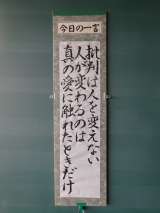 今日の一言
批判は人を変えない
人が変わるのは
真の愛に触れたときだけ